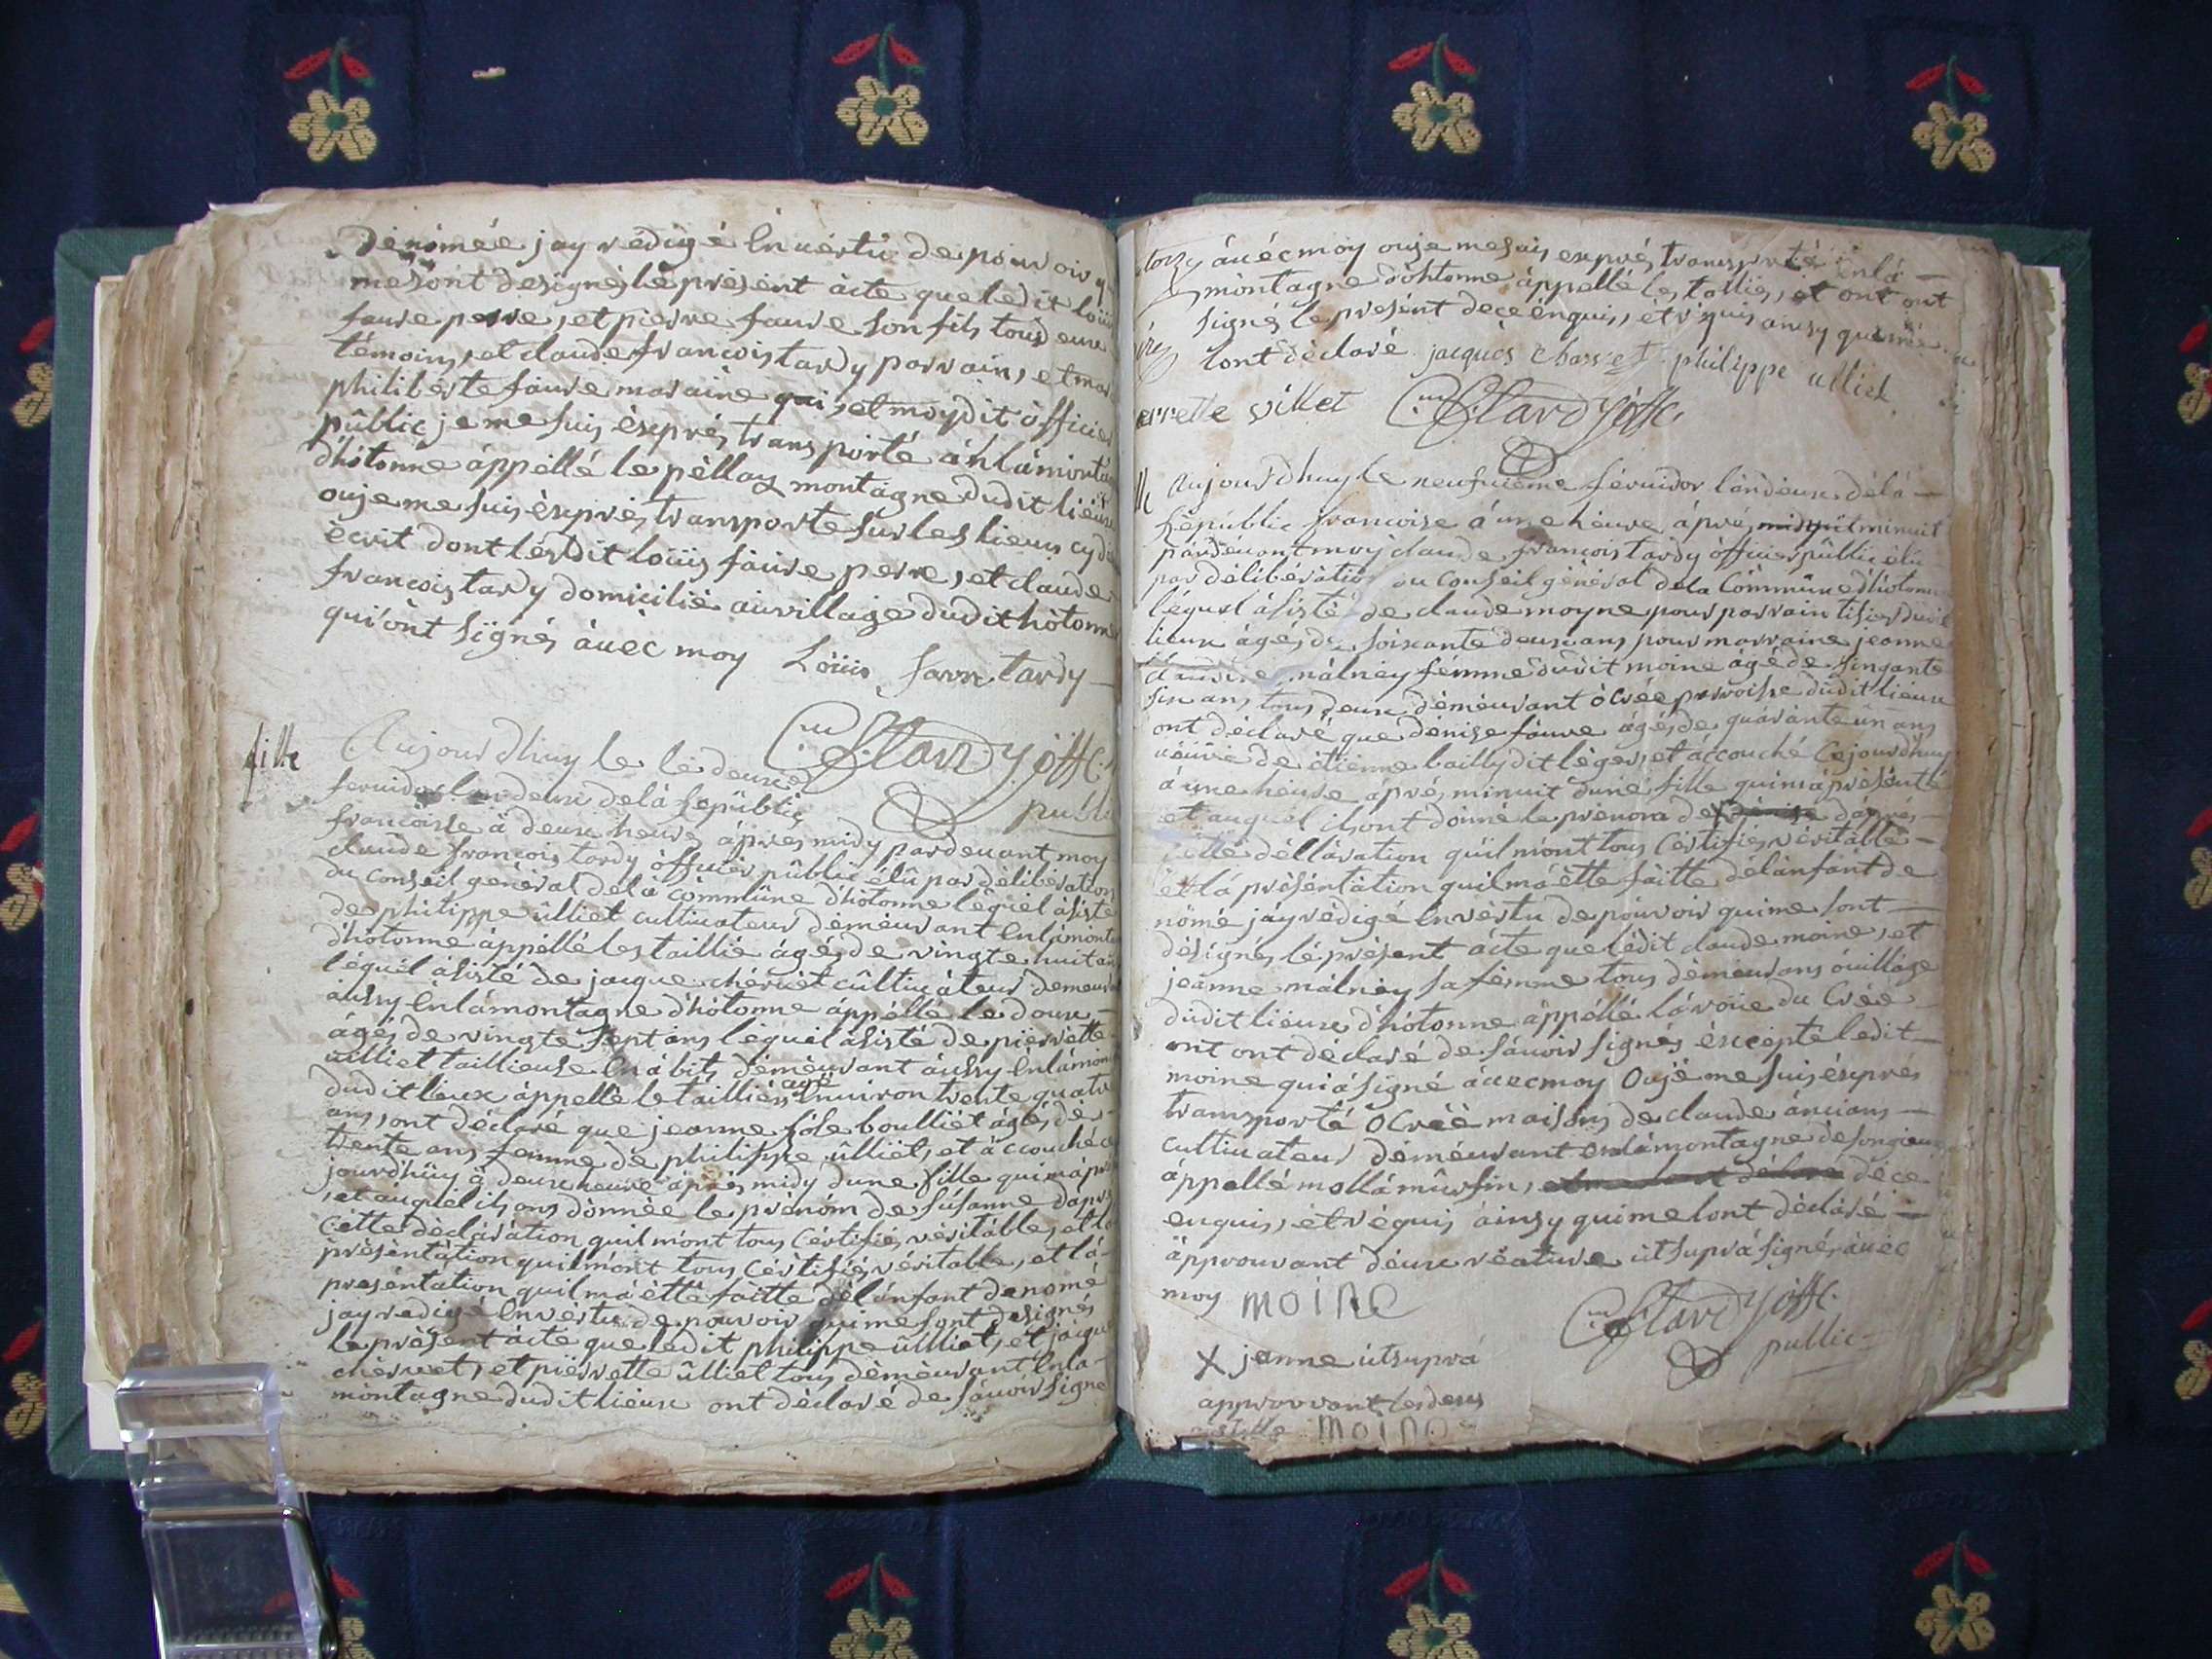 dénomée jay redigé En uertu de pouvoir q
me sont designés le présent acte que ledit loüis
faure perre, et pierre faure son fils tous deux
témoins, et claude francois tardy parrain, et mar
philiberte faure maraine qui, et moydit officier
public je me suis éxprés transporté áhlámontá
d'hotonne áppéllé le péllay montagne dudit lieux
ouje me suis éxprés transporte sur les lieux cyd
écrit dont lésdit loüis faure perre, et claude
francois tardy domicilié auvillage dudit hotonne
qui ont signés àuèc moy Loüis faure tardy
fille
Aujourdhuy le lé deuxe
feruidor lan deux delà Republic
francoisse à deux heures ápres midy pardeuant moy
claude francois tardy officiér public élu par délibération
du conseil genéral delà commune d'hotonne léquel ásisté
de philippe ulliet cultiuateur déméurant Enlámontá
d'hotonne áppéllé les taillié ágés de vingte huit an
léquél ásisté de jacque chéruet cultiuáteur demeura
áussy Enlámontagne d'hotonne áppéllé le doux
ágés de vingte sept ans léquel ásisté de piérrétte
ulliet taillieuse En ábits déméurant áussy Enlámon
dudit lieux áppellé le tailliés agé Enuiron trente quatre
ans, ont déclaré que jeanne fóle boulliét ágés de
trente ans femme de philippe ulliet, et áccouché ce
jourdhuy á deux heure áprés midy dune fille quimápré
, et auquél ils ons donnée le prénóm de susanne dáprés
cétte déclárátion quil mónt tous cértifiés véritábles, et la
préséntátion quil mónt tous cértifiés véritable, et lá
preséntation quil má étté faitte dél ánfant denomé
jay redigé En vértu de pouvoir qui me sont designés
le présent ácte que ledit philippe ulliet, et jácque
chéruet, et piérrette ulliet tous déméurant Enla
montagne dudit lieux ont déclaré de sáuoir signe
áuéc moy ouje mesuis exprés transporté enlá
montagne dóhtonne áppellé les tallies, et ont ont
signés le présent de ce enquis, ét réquis ainsy quimé
lont déclaré jacques Charvet philippe ulliet
errette villet C.en Cftardy offi.
Aujourdhuy le neufuiéme féruidor lan deux délá
Républic francoise á une héure áprés minuit
pardéuant moy claude francois tardy officiér public élu
par délibération du conseil général dela commune dhotonne
léquel ásisté de claude moyne pour parrain tisier dudit
lieux ágés de soixante deux ans pour marraine jeanne
málnéy fémme dudit moine ágé de singante
six ans tous deux déméurant ócrée parroisse dudit lieux
ont déclaré que dénise fáure ágés de quárante un ans
uéuue de étienne bailly dit léger, et accouché cejourdhuy
á une héure áprés minuit duné fille quimápréséntée
et auquél ils ont donné le prénom de X dáprés
cétté décláration quil mont tous cértifiés véritable
ét lá préséntátion quil má étte faitte dél ánfant de
nómé jáy rédigé En vértu de póuvoir qui me sont
désignés lé présent ácte que lédit claude moine, et
jeanne málnéy sa fémme tous déméurans áuilláge
dudit lieux d'hotonne áppéllé lávoüe du Crée
ont ont déclaré de sáuoir signés éxcépté ledit
moine qui á signé áuecmoy Oujé me suis éxprés
transporté ócréé maisons de claude ánciáns
cultiuateur déméurant enlámontagne de songieux
áppellé mollámurfin, dé ce
enquis, ét réquis ainsy quimelont déclaré
ápprouvant deux réature utsuprá signés áuéc
moy moine
C.en Cftardy offi.
public
X jeanne útsuprá
approuvant les deux
moine